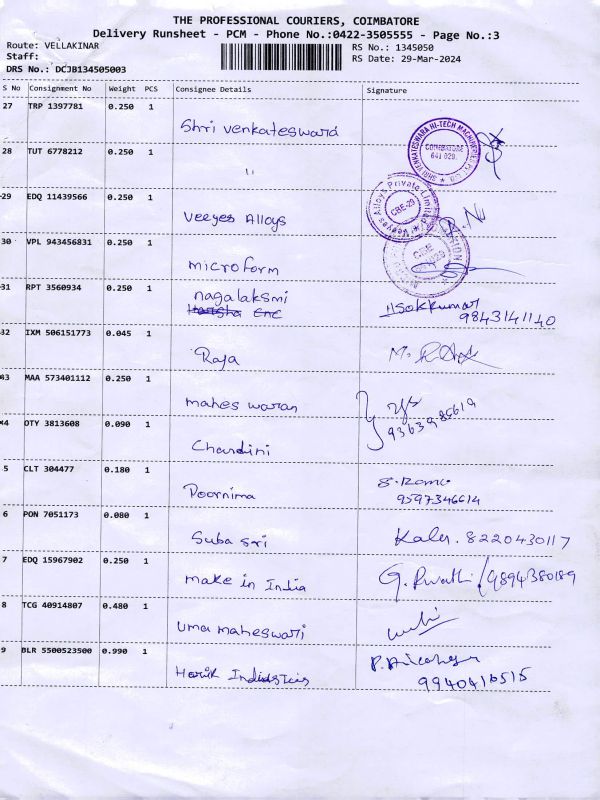 THE PROFESSIONAL COURIERS, COIMBATORE
Delivery Runsheet - PCM - Phone No.:0422-3505555 - Page No.:3
Route: VELLAKINAR
RS No.: 1345050
Staff:
RS Date: 29-Mar-2024
DRS No.: DCJB134505003
S No Consignment No Weight PCS Consignee Details Signature
27 TRP 1397781 0.250 1
Shri Venkateswara
28 TUT 6778212 0.250 1
"
SHRI VENKATESWARA HI-TECH MACHINERY
COIMBATORE
641 029.
29 EDQ 11439566 0.250 1
Veeyes Alloys
Veeyes Alloys Private Limited
CBE-29
30 VPL 943456831 0.250 1
microform
CBE
31 RPT 3560934 0.250 1
nagalaksmi
9843141140
32 IXM 506151773 0.045 1
Raja
43 MAA 573401112 0.250 1
mahes waran
44 OTY 3813608 0.090 1
Chandini
5 CLT 304477 0.180 1
Poornima
9597346614
6 PON 7051173 0.080 1
Suba sri
8220430117
7 EDQ 15967902 0.250 1
make in India
9894380189
8 TCG 40914807 0.480 1
uma maheswari
9 BLR 5500523500 0.990 1
Harik Industries